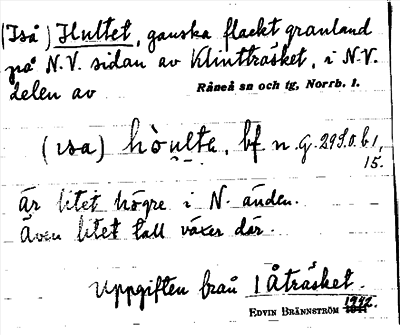 (Iså) Hultet, ganska flackt granland
på N.V. sidan av Klintträsket, i N.V.
delen av Råneå sn och tg, Norrb. l.
(ɩsa) hòulte, bf n. G. 29 S.O. b 1,
15.
Är litet högre i N. änden.
Även litet tall växer där.
Uppgiften från I Åträsket.
EDVIN BRÄNNSTRÖM 1942.